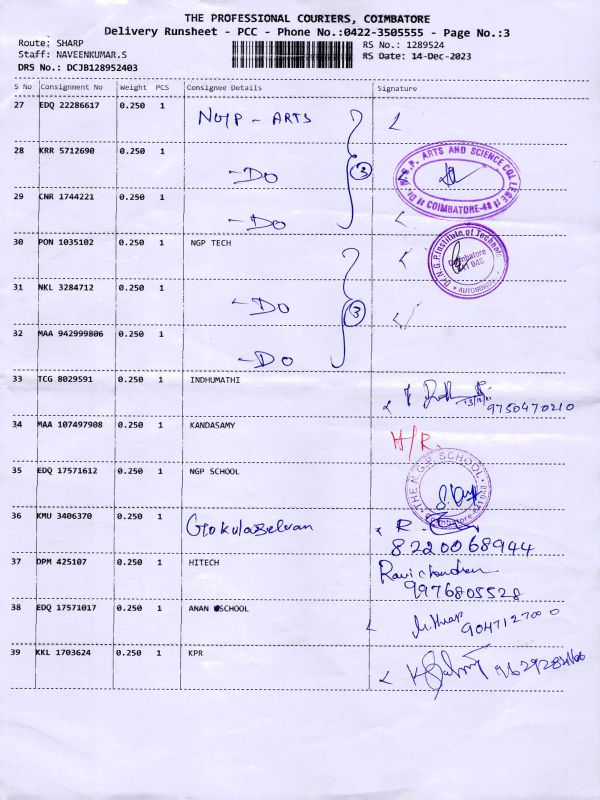 THE PROFESSIONAL COURIERS, COIMBATORE
Delivery Runsheet - PCC - Phone No.:0422-3505555 - Page No.:3
Route: SHARP
Staff: NAVEENKUMAR.S
DRS No.: DCJB128952403
RS No.: 1289524
RS Date: 14-Dec-2023
S No Consignment No Weight PCS Consignee Details Signature
27 EDQ 22286617 0.250 1 NGP - ARTS
28 KRR 5712690 0.250 1 -DO 3
29 CNR 1744221 0.250 1 -DO
Dr. N.G.P. ARTS AND SCIENCE COLLEGE
COIMBATORE-48
30 PON 1035102 0.250 1 NGP TECH
Dr.N.G.P.Institute of Technology
Coimbatore
641 048
AUTONOMOUS
31 NKL 3284712 0.250 1 -DO 3
32 MAA 942999806 0.250 1 -DO
33 TCG 8029591 0.250 1 INDHUMATHI
9750470210
34 MAA 107497908 0.250 1 KANDASAMY H/R.
35 EDQ 17571612 0.250 1 NGP SCHOOL
THE N.G.P. SCHOOL
Coimbatore-641
36 KMU 3406370 0.250 1 Gokulaselvan R.
8220068944
37 DPM 425107 0.250 1 HITECH Ravichandran
9976805528
38 EDQ 17571017 0.250 1 ANAN SCHOOL
9047127000
39 KKL 1703624 0.250 1 KPR